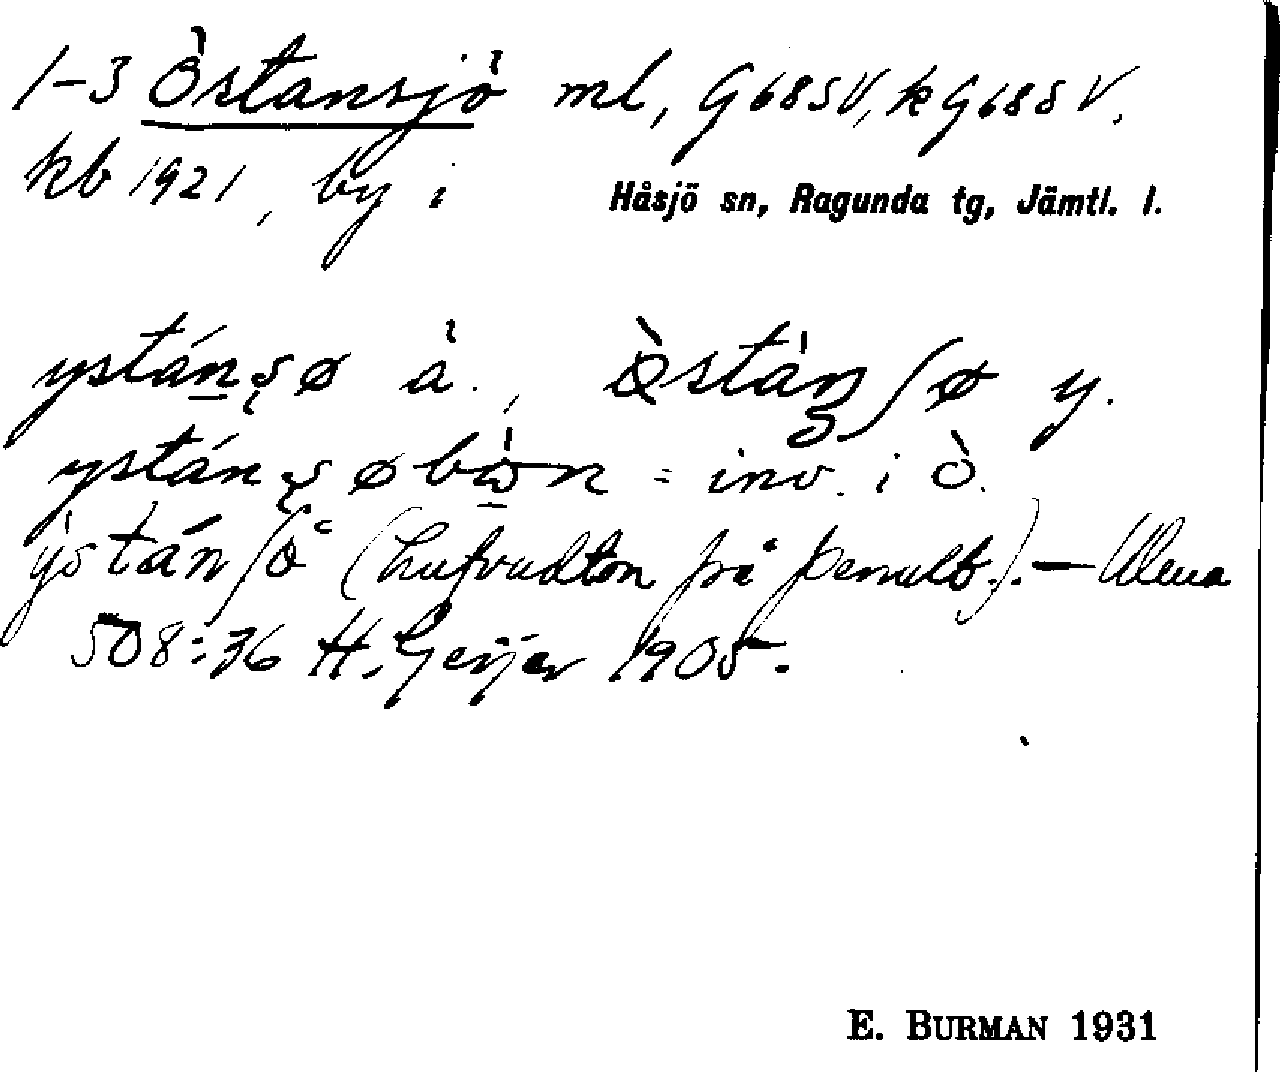 1-3 Östansjö ml, G 68 SV, k G 68 S V.
kb 1921, by i Håsjö sn, Ragunda tg, Jämtl. l.
ystánʂø ä., Östánʃø y.
ystánʂøbön = inv. i Ö.
ýstánʃö (hufvudton på penult.). –
508:36 H. Geijer 1905.
E. BURMAN 1931